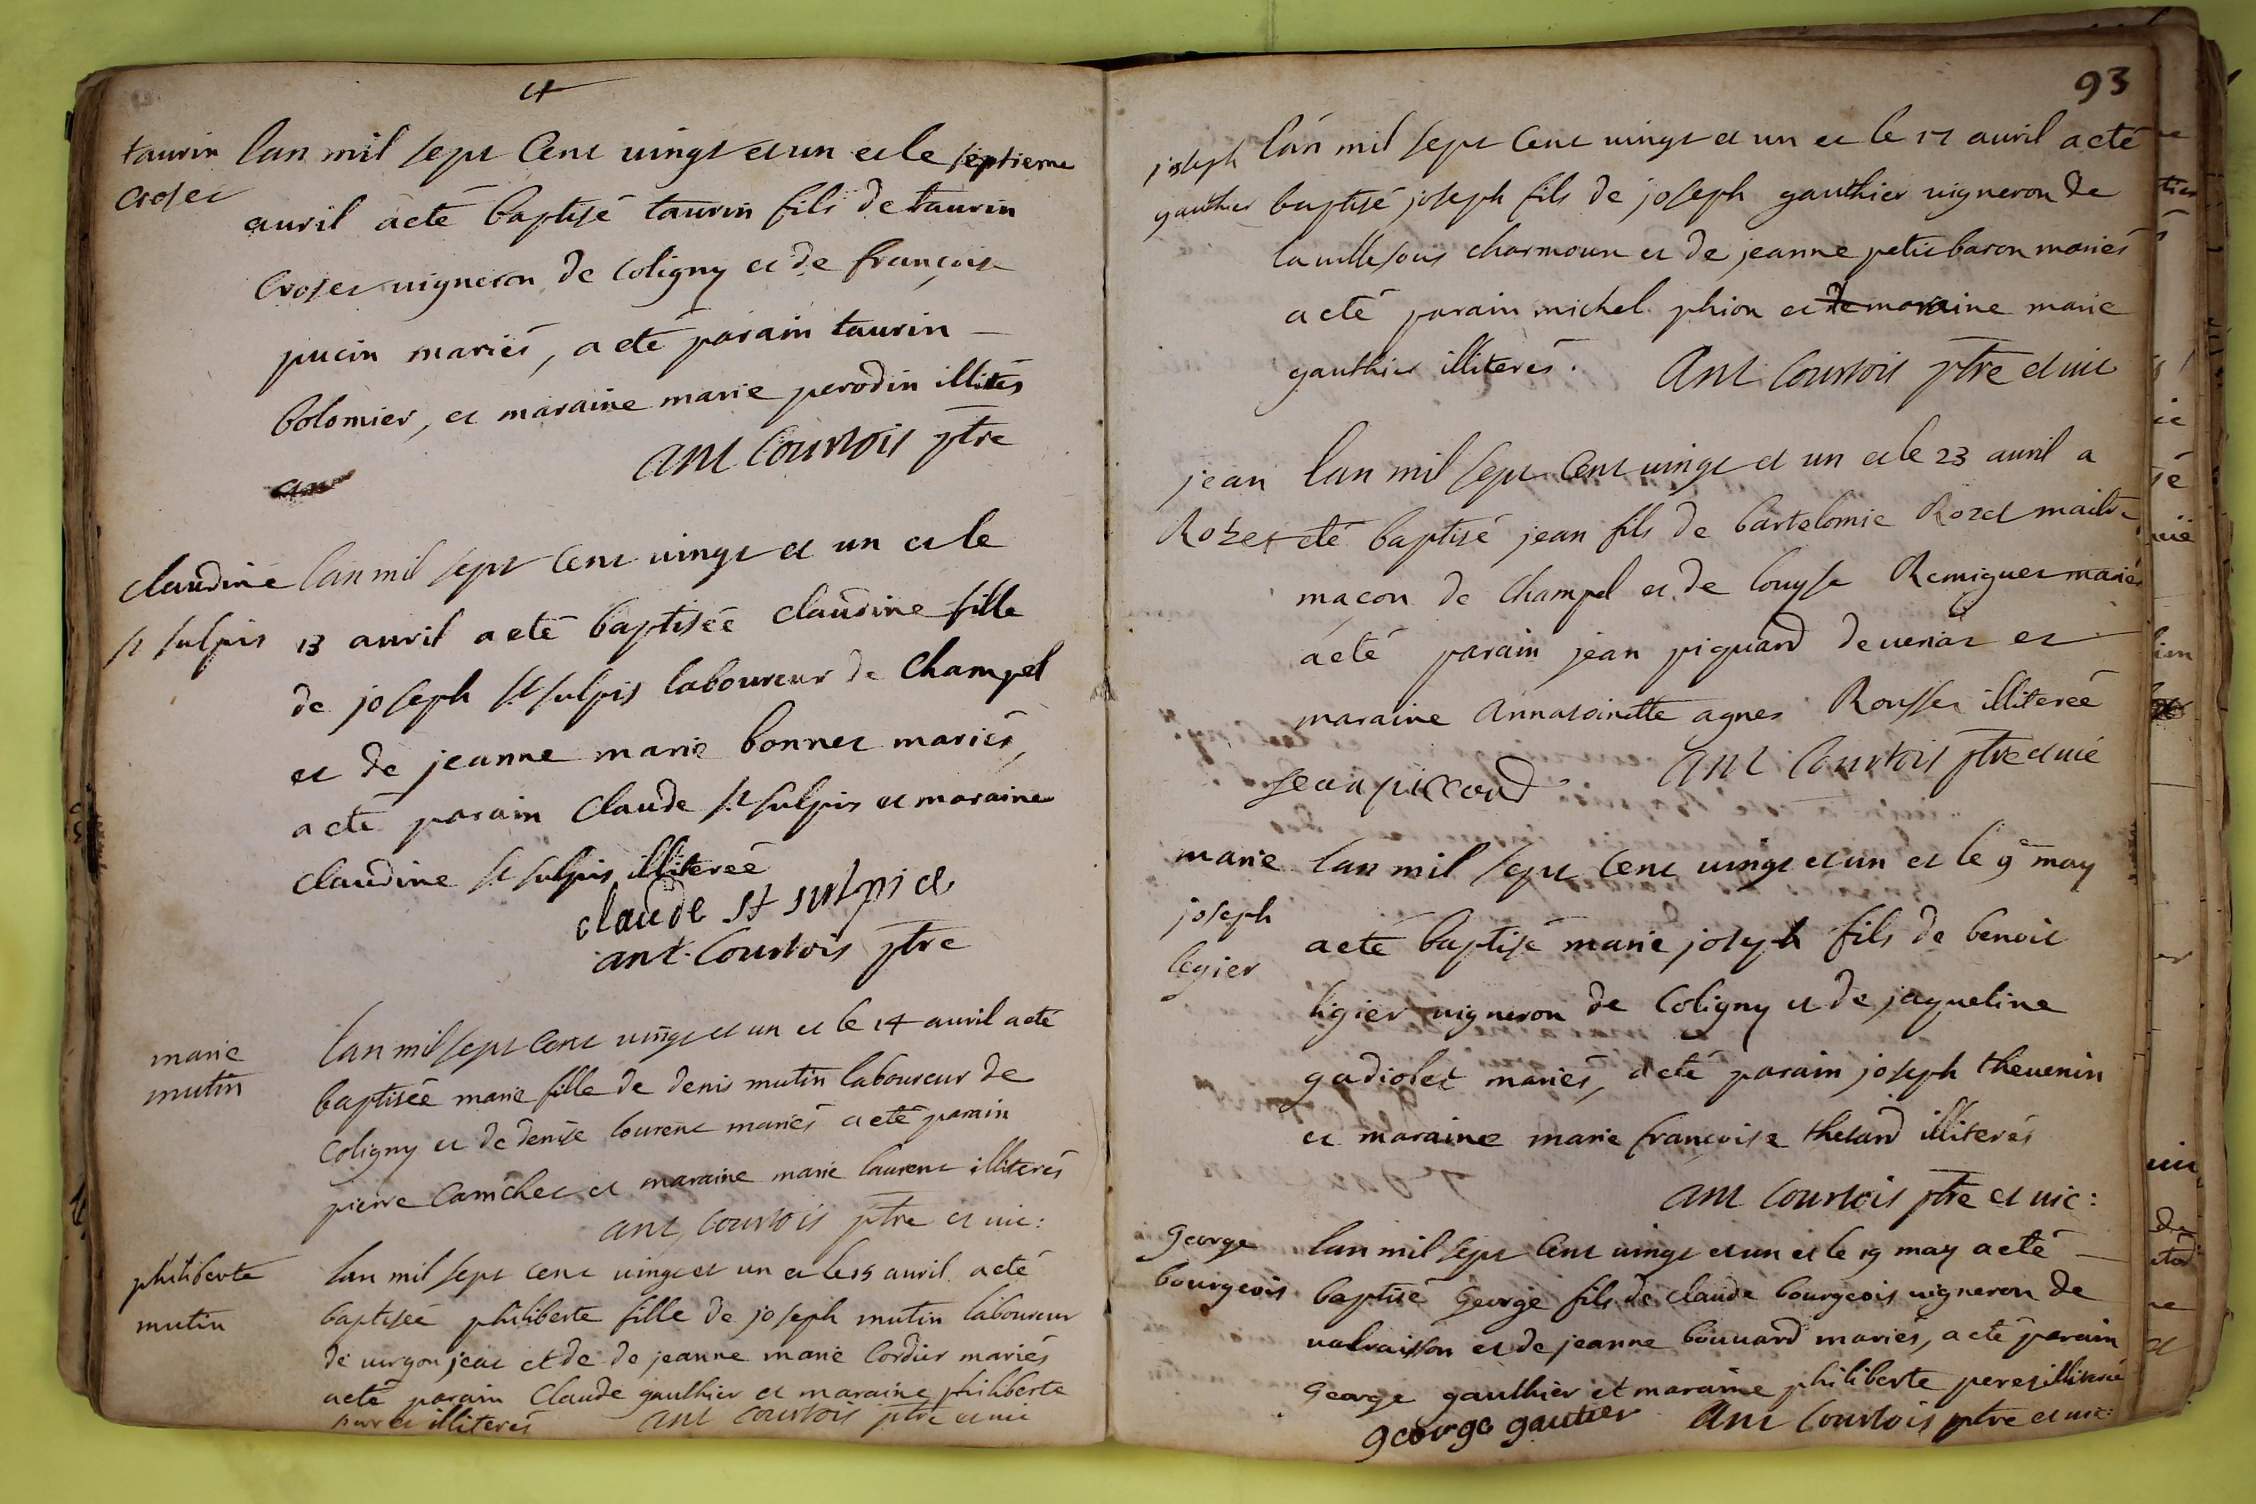 taurin
croset
lan mil sept cent vingt et un et le septieme
avril a eté baptisé taurin fils de taurin
croset vigneron de coligny et de françoise
pucin mariés, a eté parain taurin
bolomier, et maraine marie perodin illités
ant courtois ptre
claudine
st sulpis
lan mil sept cent vingt et un et le
13 avril a eté baptiseé claudine fille
de joseph st sulpis laboureur de champel
et de jeanne marie bonnet mariés,
a eté parain claude st sulpis et maraine
claudine st sulpis illitereé
claude st sulpice
ant. courtois ptre
marie
mutin
lan mil sept cent vingt et un et le 14 avril a eté
baptiseé marie fille de denis mutin laboureur de
coligny et de denise lourent mariés a eté parain
pierre camchet et maraine marie laurent illiterés
ant courtois ptre et vic:
philiberte
mutin
lan mil sept cent vingt et un et le 15 avril a eté
baptiseé philiberte fille de joseph mutin laboureur
de vergonjeat et de de jeanne marie cordier mariés
a eté parain claude gauthier et maraine philiberte
illiterés ant courtois ptre et vic
93
joseph
gauthier
lan mil sept cent vingt et un et le 17 avril a eté
baptisé joseph fils de joseph gauthier vigneron de
lavillesous charmoux et de jeanne petit baron mariés
a eté parain michel phion et de maraine marie
gauthier illiterés. ant courtois ptre et vic
jean
Rozet
lan mil sept cent vingt et un et le 23 avril a
eté baptisé jean fils de bartelomie Rozet maitre
maçon de champel et de louyse Remiguet mariés
a eté parain jean piquard de veriat et
maraine annatoinette agnes Rousset illitereé
jean piccard ant courtois ptre et vic
marie
joseph
legier
lan mil sept cent vingt et un et le 9e may
a eté baptisé marie joseph fils de benoit
ligier vigneron de coligny et de jaqueline
gadiolet mariés, a eté parain joseph thevenin
et maraine marie françoise thetard illiterés
ant courtois ptre et vic:
george
bourgeois
lan mil sept cent vingt et un et le 19 may a eté
baptisé george fils de claude bourgeois vigneron de
valraisson et de jeanne bouvard mariés, a eté parain
george gaulthier et maraine philiberte peret illitereé
george gautier ant courtois ptre et vic: